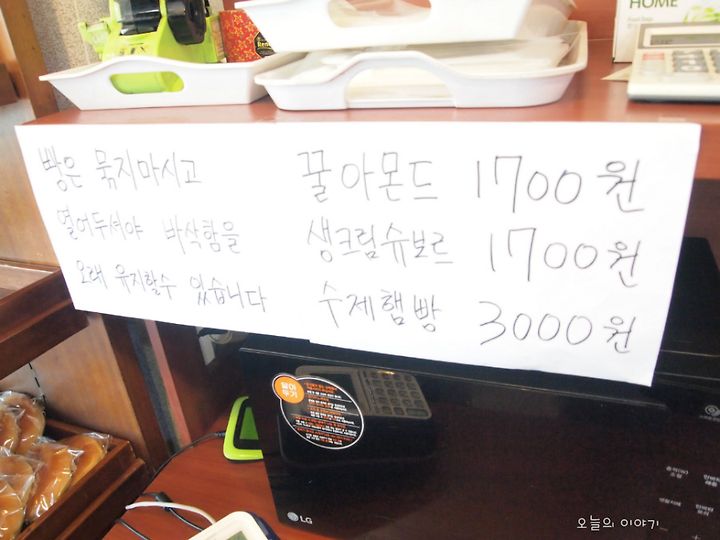 HOME
빵은 묶지마시고
열어두셔야 바삭함을
오래 유지할수 있습니다
꿀아몬드 1700원
생크림슈보르 1700원
수제햄빵 3000원
LG
오늘의 이야기